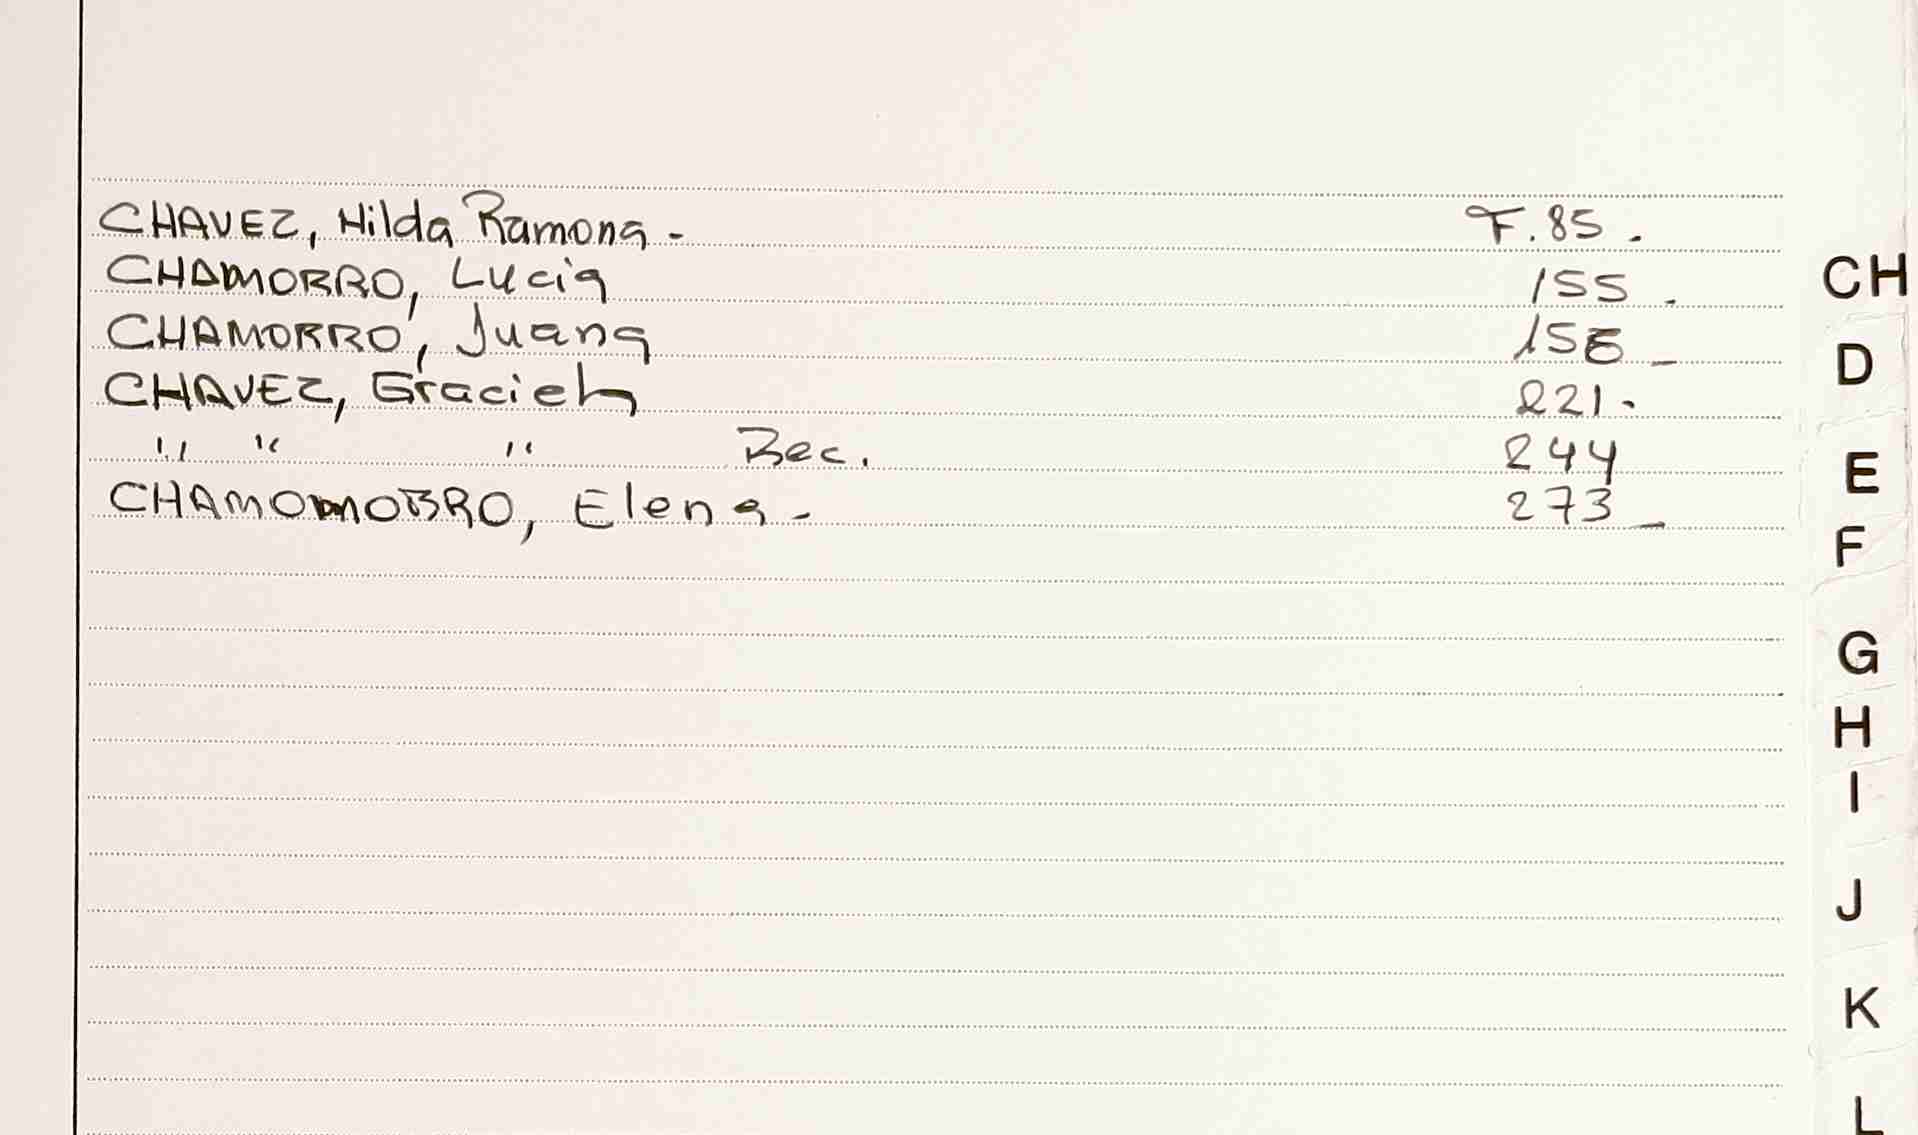 CHAVEZ, Hilda Ramona - F. 85.
CHAMORRO, Lucia 155.
CHAMORRO, Juana -
CHAVEZ, Graciela 221.
" " " Rec. 244
CHAMOMORRO, Elena - 273 -
CH
D
E
F
G
H
I
J
K
L